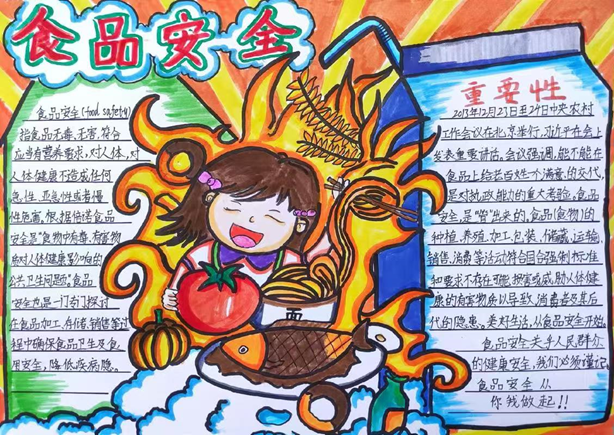 食品安全
食品安全(food safety)
指食品无毒、无害,符合
应当有营养要求,对人体,对
人体健康不造成任何
急性、亚急性或者慢
性危害。根据倍诺食品
安全是“食物中有毒、有害物
质对人体健康影响的
公共卫生问题”。食品
安全也是一门专门探讨
在食品加工、存储、销售等过
程中确保食品卫生及食
用安全,降低疾病隐。
面
重要性
2013年12月23日至24日中央农村
工作会议在北京举行,习近平在会上
发表重要讲话。会议强调,能不能在
食品上给老百姓一个满意的交代,
是对执政能力的重大考验。食品
安全,是“管”出来的,食品(食物)的
种植、养殖、加工、包装、储藏、运输、
销售、消费等活动符合国台强制标准
和要求,不存在可能损害或威胁人体健
康的有害物质以导致消费者及其后
代的隐患。美好生活,从食品安全开始
食品安全关乎人民群众
的健康安全,我们必须谨记
食品安全从
你我做起!!